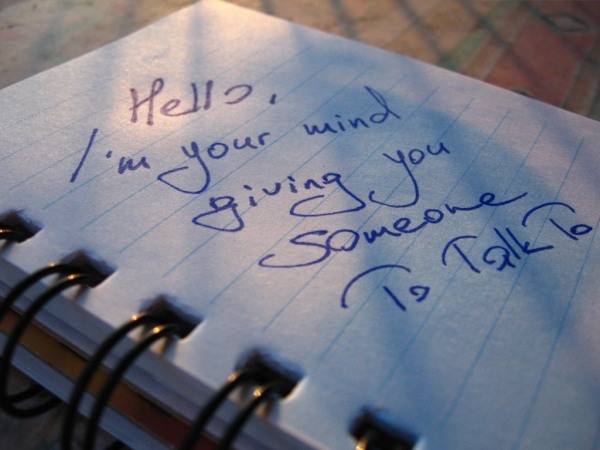 Hello,
I'm your mind
giving you
someone
To Talk To